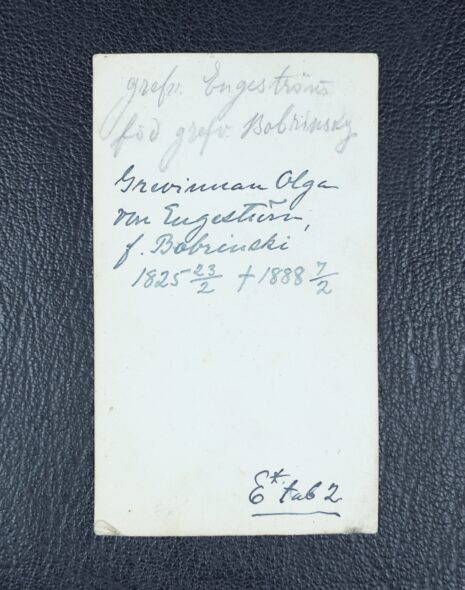 grefv. Engeström
föd grefv. Bobrinsky
Grevinnan Olga
von Engeström,
f. Bobrinski
1825 23/2 † 1888 7/2
E* tab 2